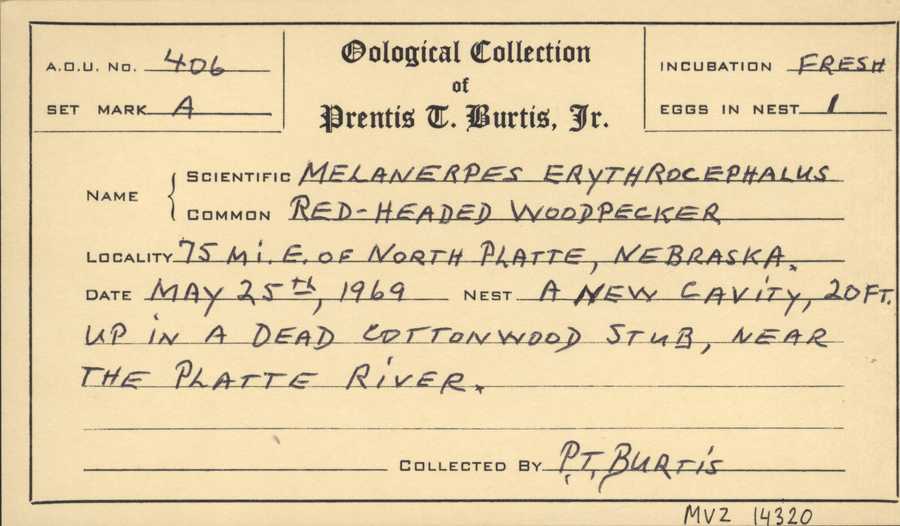 A.O.U. No. 406
Oological Collection
of
Prentis T. Burtis, Jr.
INCUBATION FRESH
SET MARK A
EGGS IN NEST 1
NAME
SCIENTIFIC MELANERPES ERYTHROCEPHALUS
COMMON RED-HEADED WOODPECKER
LOCALITY 75 Mi. E. OF NORTH PLATTE, NEBRASKA.
DATE MAY 25th, 1969 NEST A NEW CAVITY, 20 FT.
UP IN A DEAD COTTONWOOD STUB, NEAR
THE PLATTE RIVER.
COLLECTED BY P.T. BURTIS
MVZ 14320